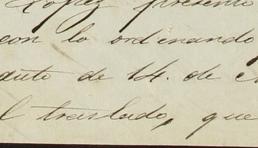 Lopez presente
con lo ordenando
duto de 14. de
l traslado, que